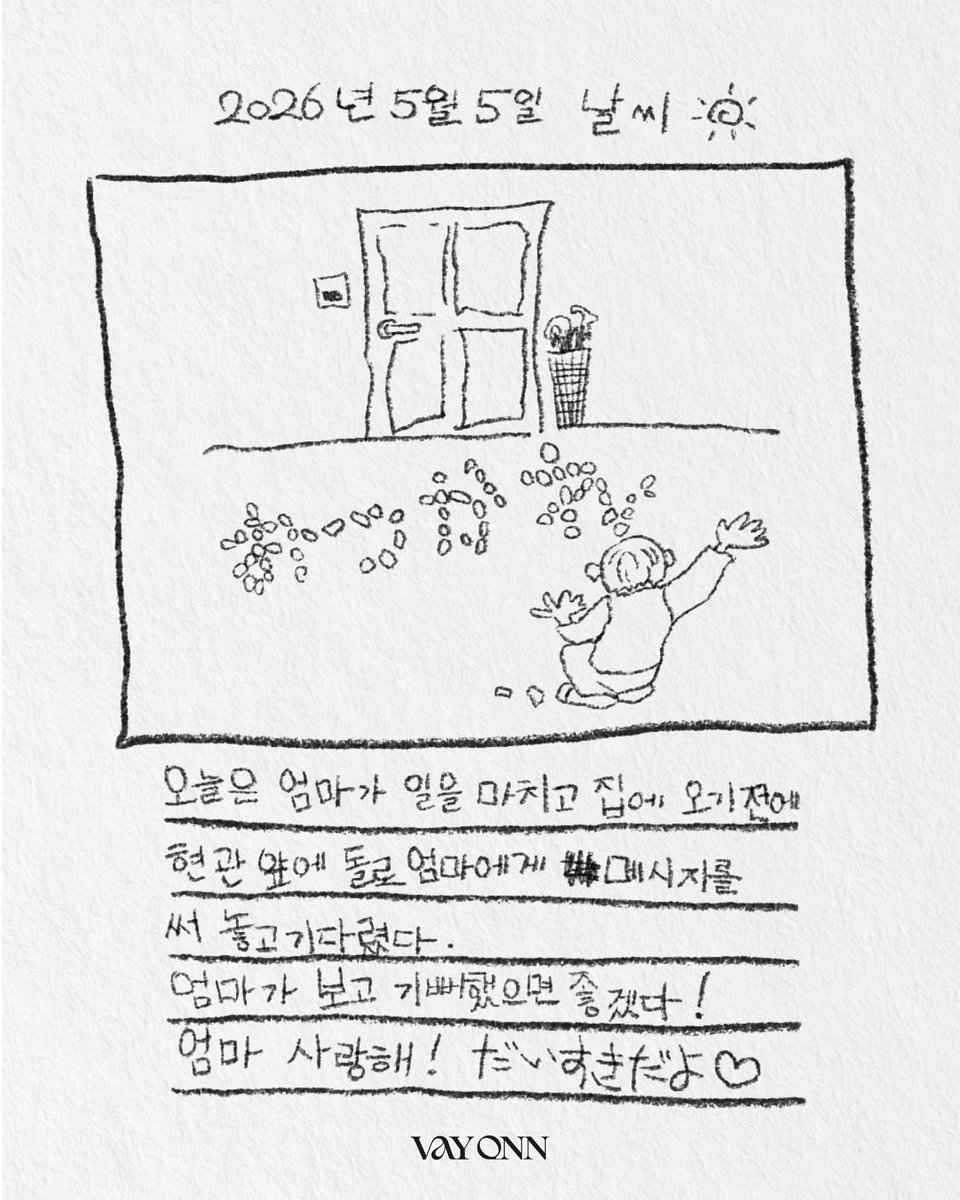 2026년 5월 5일 날씨
오늘은 엄마가 일을 마치고 집에 오기전에
현관 앞에 돌로 엄마에게 메시지를
써 놓고 기다렸다.
엄마가 보고 기뻐했으면 좋겠다!
엄마 사랑해! だいすきだよ♡
VAYONN